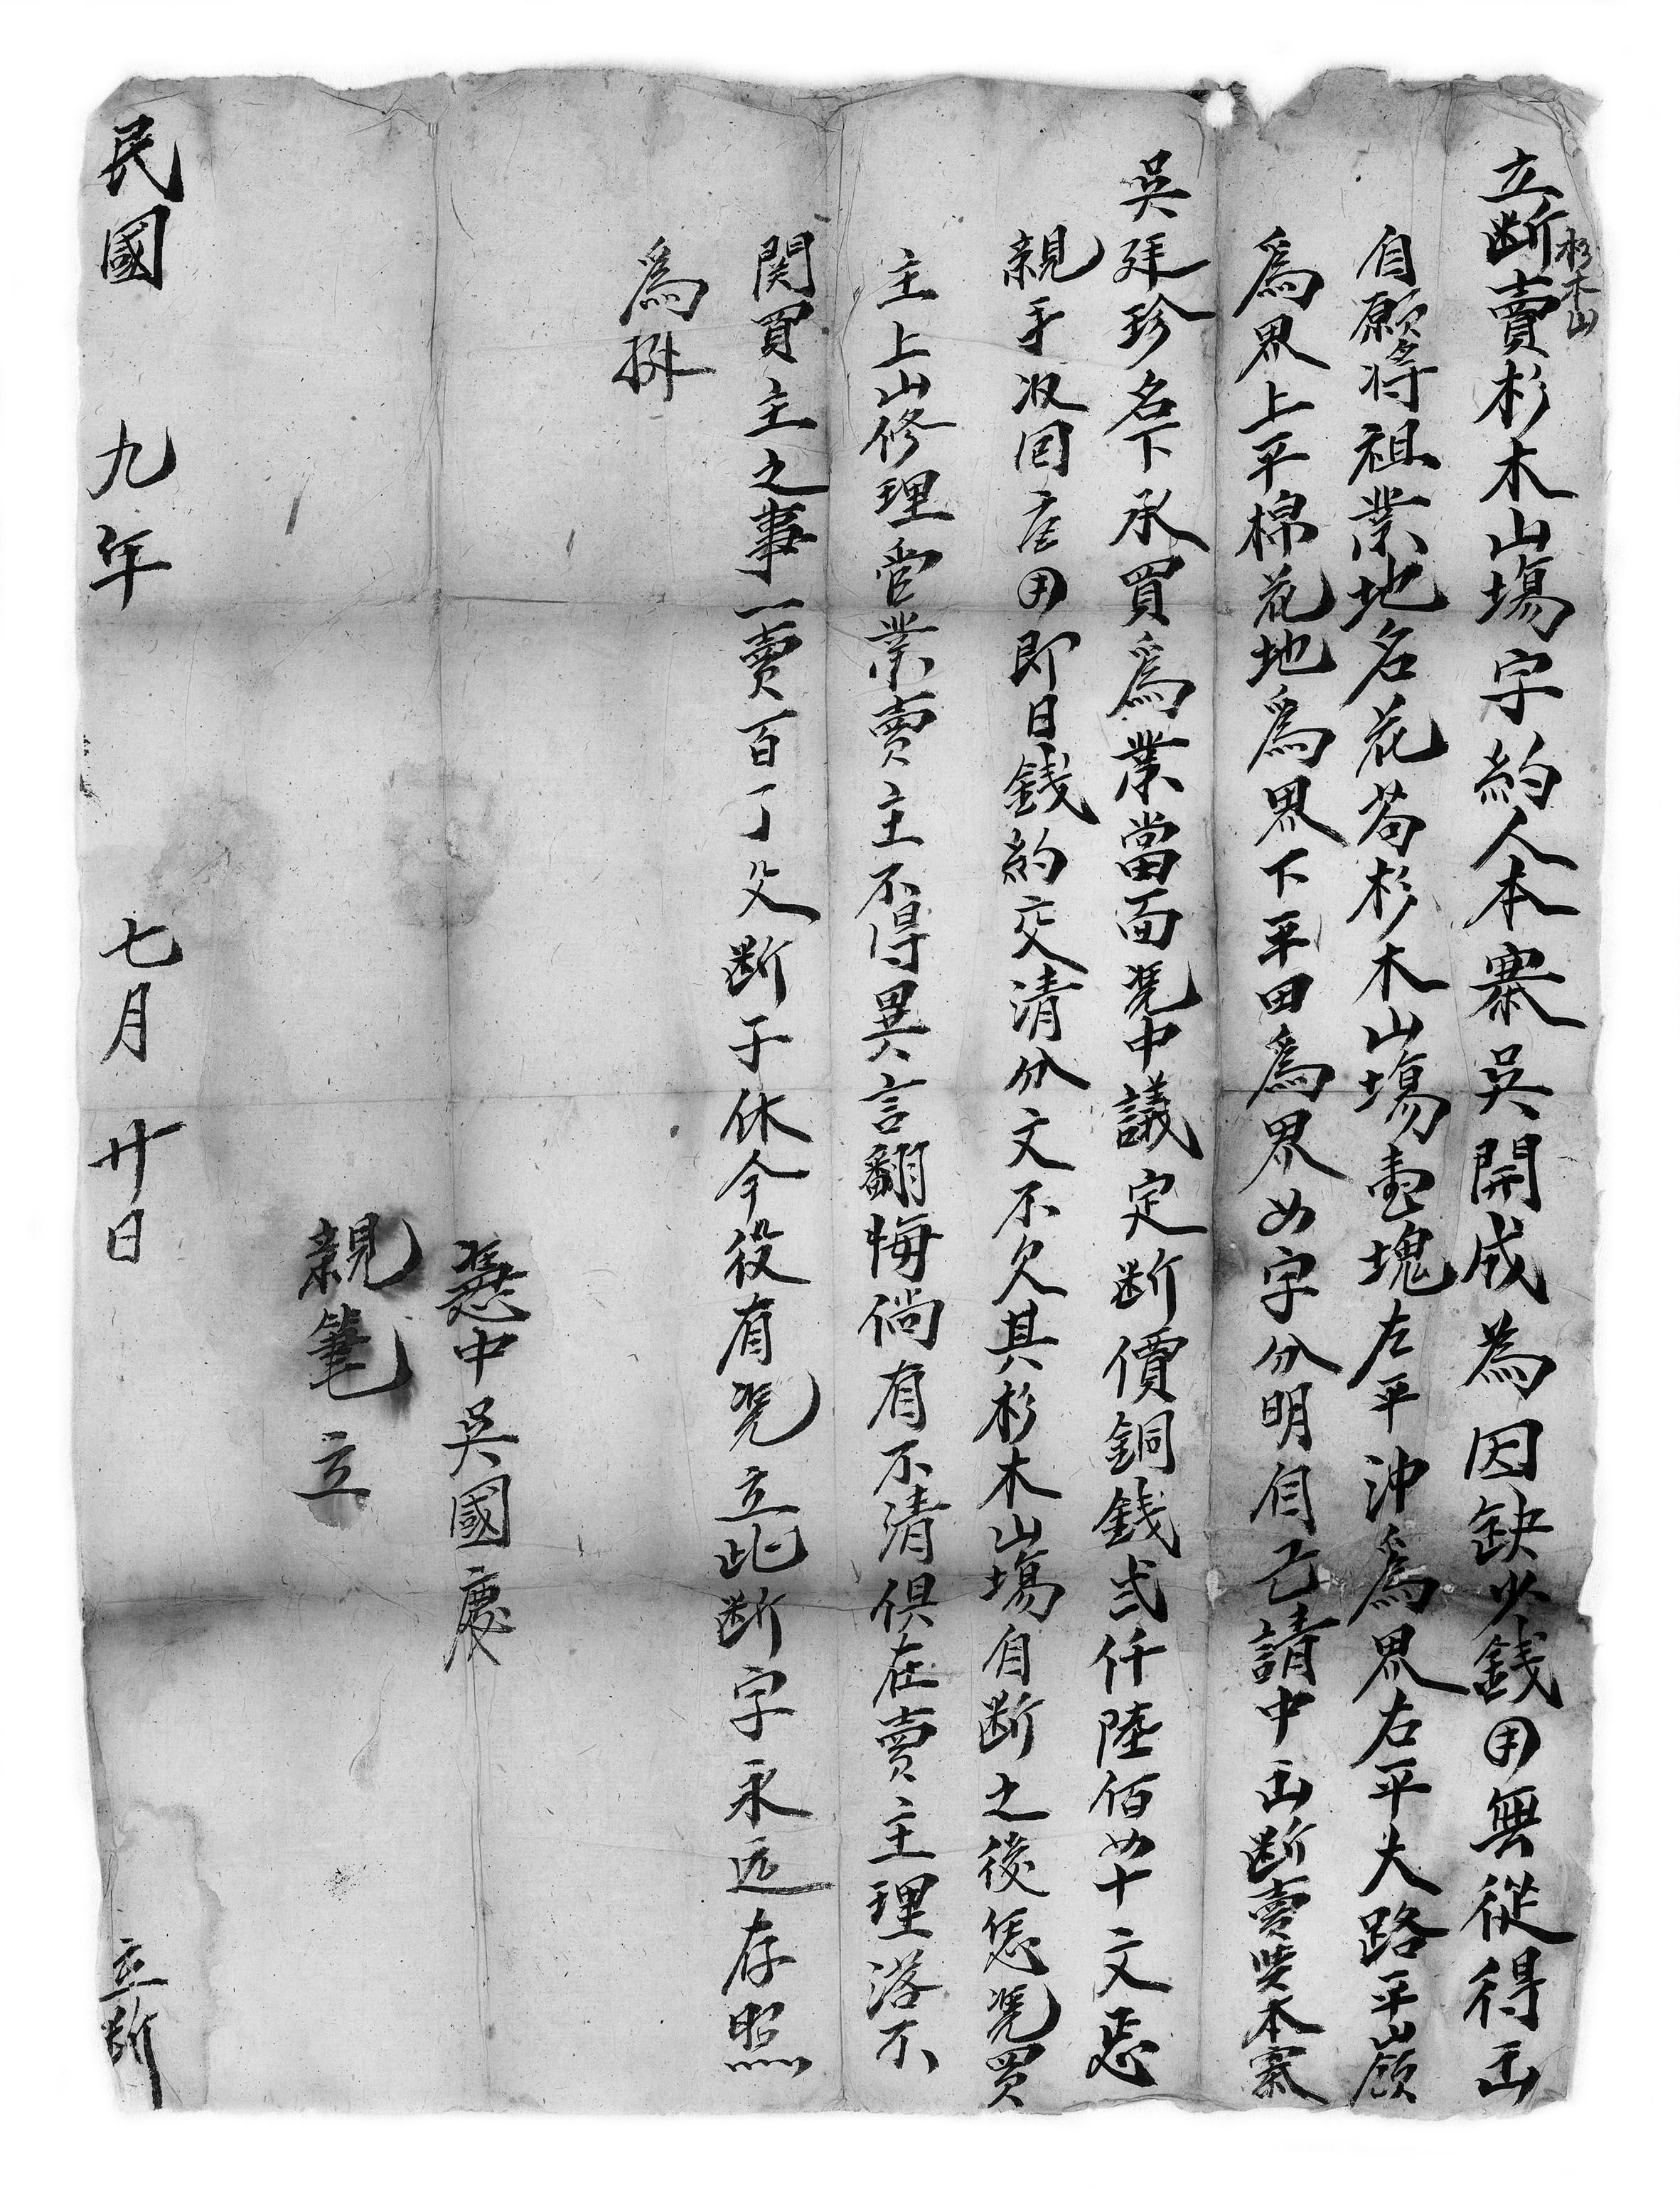 杉木山
立断賣杉木山塲字約人本寨吳開成為因缺少錢用無從得出
自願将祖業地名花苟杉木山塲壹塊左平沖為界右平大路平山嶺
為界上平棉花地為界下平田為界四字分明自己請中出断賣與本寨
吳珍名下承買為業當面凭中議定断價銅錢弍仟陸佰四十文恁
親手收回应用即日錢約交清分文不欠其杉木山塲自断之後恁凭買
主上山修理管業賣主不得異言翻悔倘有不清俱在賣主理落不
関買主之事一賣百了父断子休今役有凭立此断字永远存照
為
憑中吳國慶
親筆立
民國九年七月廿日立断